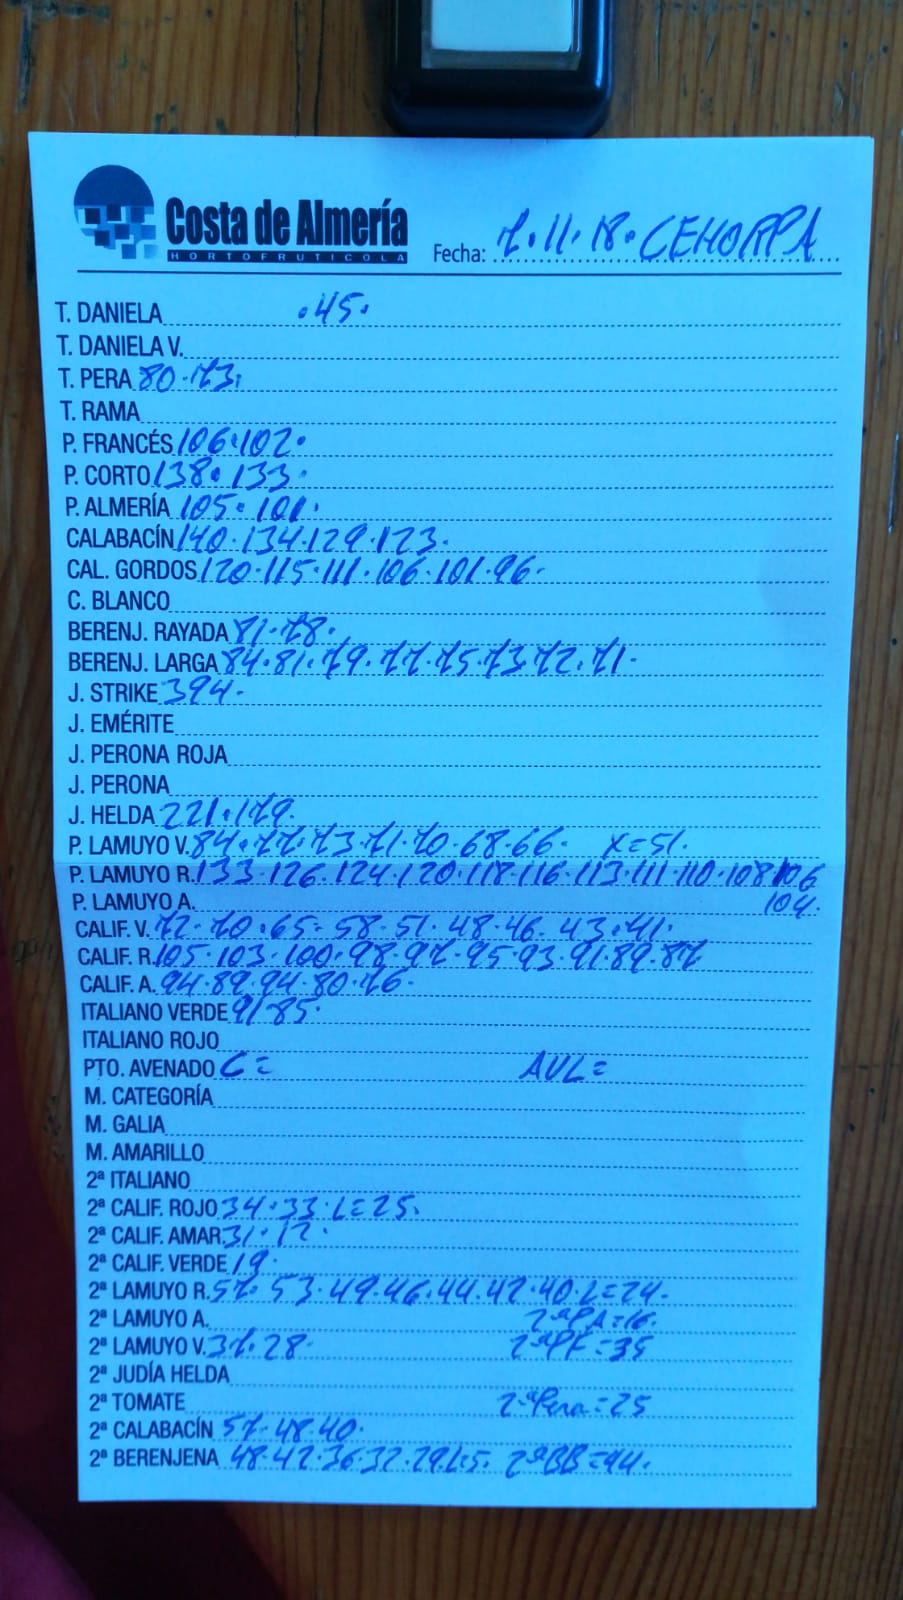 Costa de Almería
HORTOFRUTICOLA
Fecha: 7.11.18. CEHORPA
T. DANIELA .45.
T. DANIELA V.
T. PERA 80.73.
T. RAMA
P. FRANCÉS 106.102.
P. CORTO 138.133.
P. ALMERÍA 105.101.
CALABACÍN 140.134.129.123.
CAL. GORDOS 120.115.111.106.101.96.
C. BLANCO
BERENJ. RAYADA 81.78.
BERENJ. LARGA 84.81.79.77.75.73.72.71.
J. STRIKE 394.
J. EMÉRITE
J. PERONA ROJA
J. PERONA
J. HELDA 221.179.
P. LAMUYO V. 84.77.73.71.70.68.66. X=51.
P. LAMUYO R. 133.126.124.120.118.116.113.111.110.108 106
P. LAMUYO A. 104.
CALIF. V. 72.70.65.58.51.48.46.43.41.
CALIF. R. 105.103.100.98.97.95.93.91.89.87
CALIF. A. 94.89.94.80.76.
ITALIANO VERDE 91.85.
ITALIANO ROJO
PTO. AVENADO C= AVL=
M. CATEGORÍA
M. GALIA
M. AMARILLO
2ª ITALIANO
2ª CALIF. ROJO 34.33.L=25.
2ª CALIF. AMAR. 31.17.
2ª CALIF. VERDE 19.
2ª LAMUYO R. 57.53.49.46.44.42.40.L=24.
2ª LAMUYO A. 2ªPA=16.
2ª LAMUYO V. 37.28. 2ªPF=35
2ª JUDÍA HELDA
2ª TOMATE 2ªPera=25
2ª CALABACÍN 57.48.40.
2ª BERENJENA 48.42.36.32.29. 2ªBB=44.